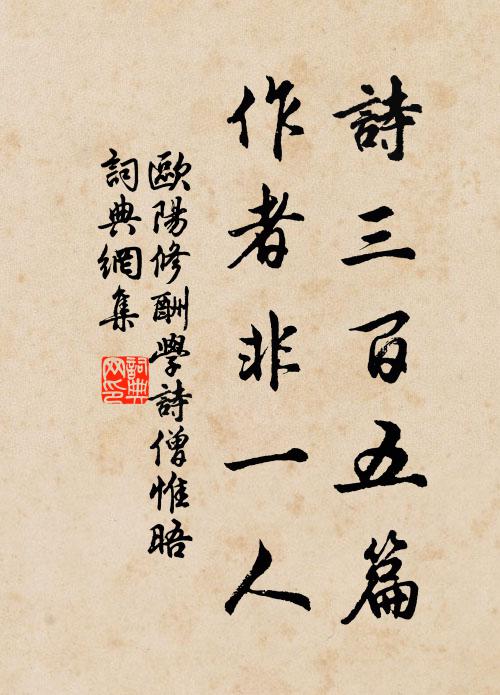 詩三百五篇
作者非一人
歐陽修酬學詩僧惟晤
詞典網集
詞典網印